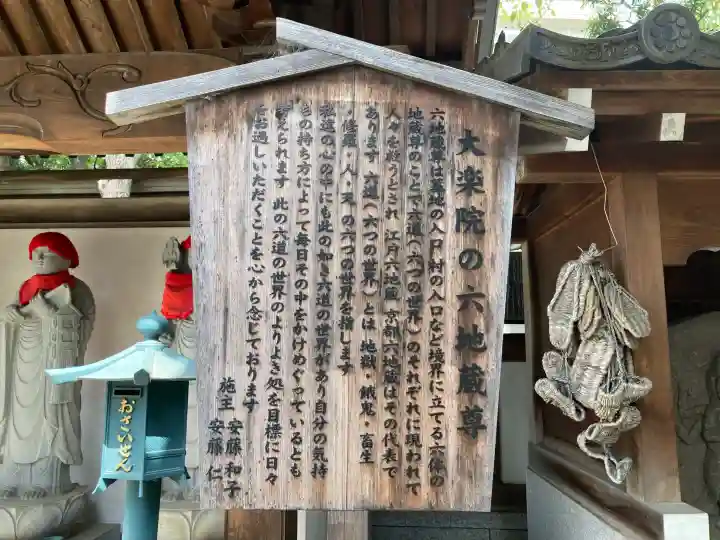 大楽院の六地蔵尊
六地蔵尊は墓地の入口 村の入口など境界に立てる六体の
地蔵尊のことで六道(六つの世界)のそれぞれに現われて
人々を救うとされ 江戸六地蔵 京都六地蔵はその代表で
あります 六道(六つの世界)とは 地獄・餓鬼・畜生
・修羅・人・天 の六つの世界を指します
私達の心の中にも此の如き六道の世界があり自分の気持
ちの持ち方によって毎日その中をかけめぐっているとも
考えられます 此の六道の世界のよりよき処を目標に日々
過しいただくことを心から念じております
施主 安藤和子
安藤 仁
おさいせん